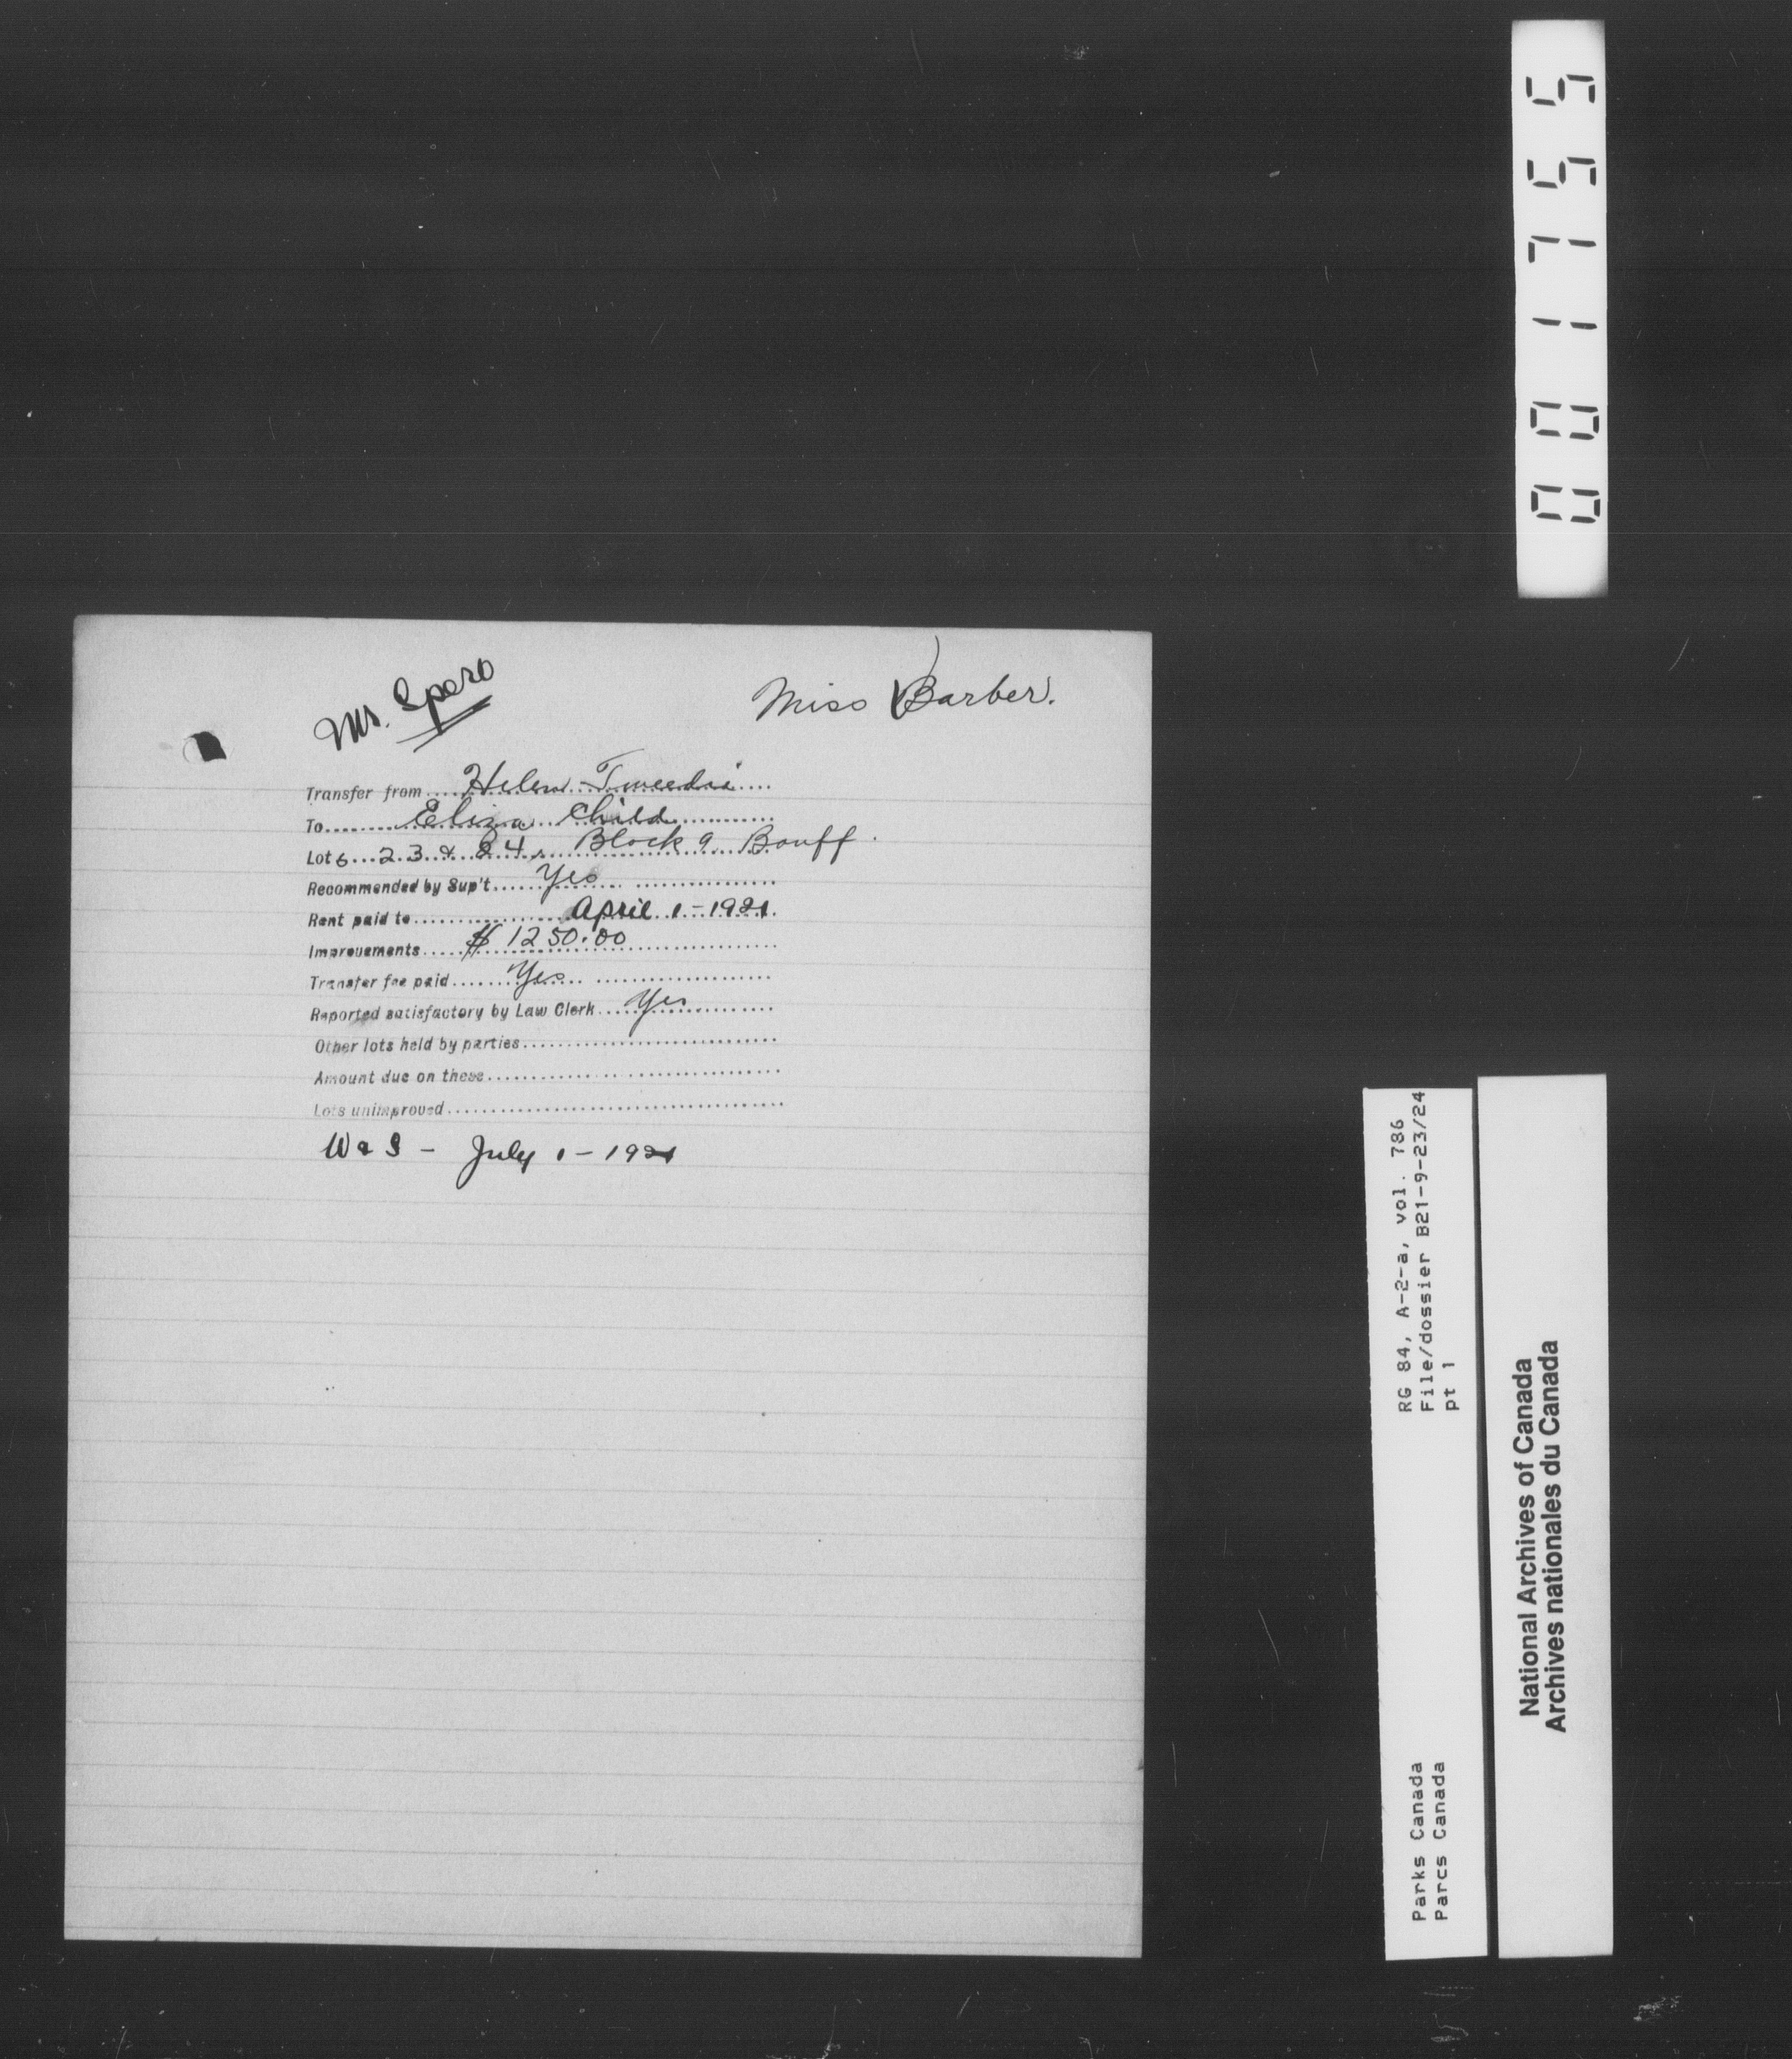 001755
Mr. Spero
Miss Barber.
Transfer from Helen Tweedie
To Eliza Child
Lots 23 & 24, Block 9 Banff.
Recommended by Sup't Yes
Rent paid to April 1-1921.
Improvements $1250.00
Transfer fee paid Yes
Reported satisfactory by Law Clerk Yes
Other lots held by parties
Amount due on these
Lots unimproved
W & S - July 1-1921
RG 84, A-2-a, vol. 786
File/dossier B21-9-23/24
pt 1
Parks Canada
Parcs Canada
National Archives of Canada
Archives nationales du Canada